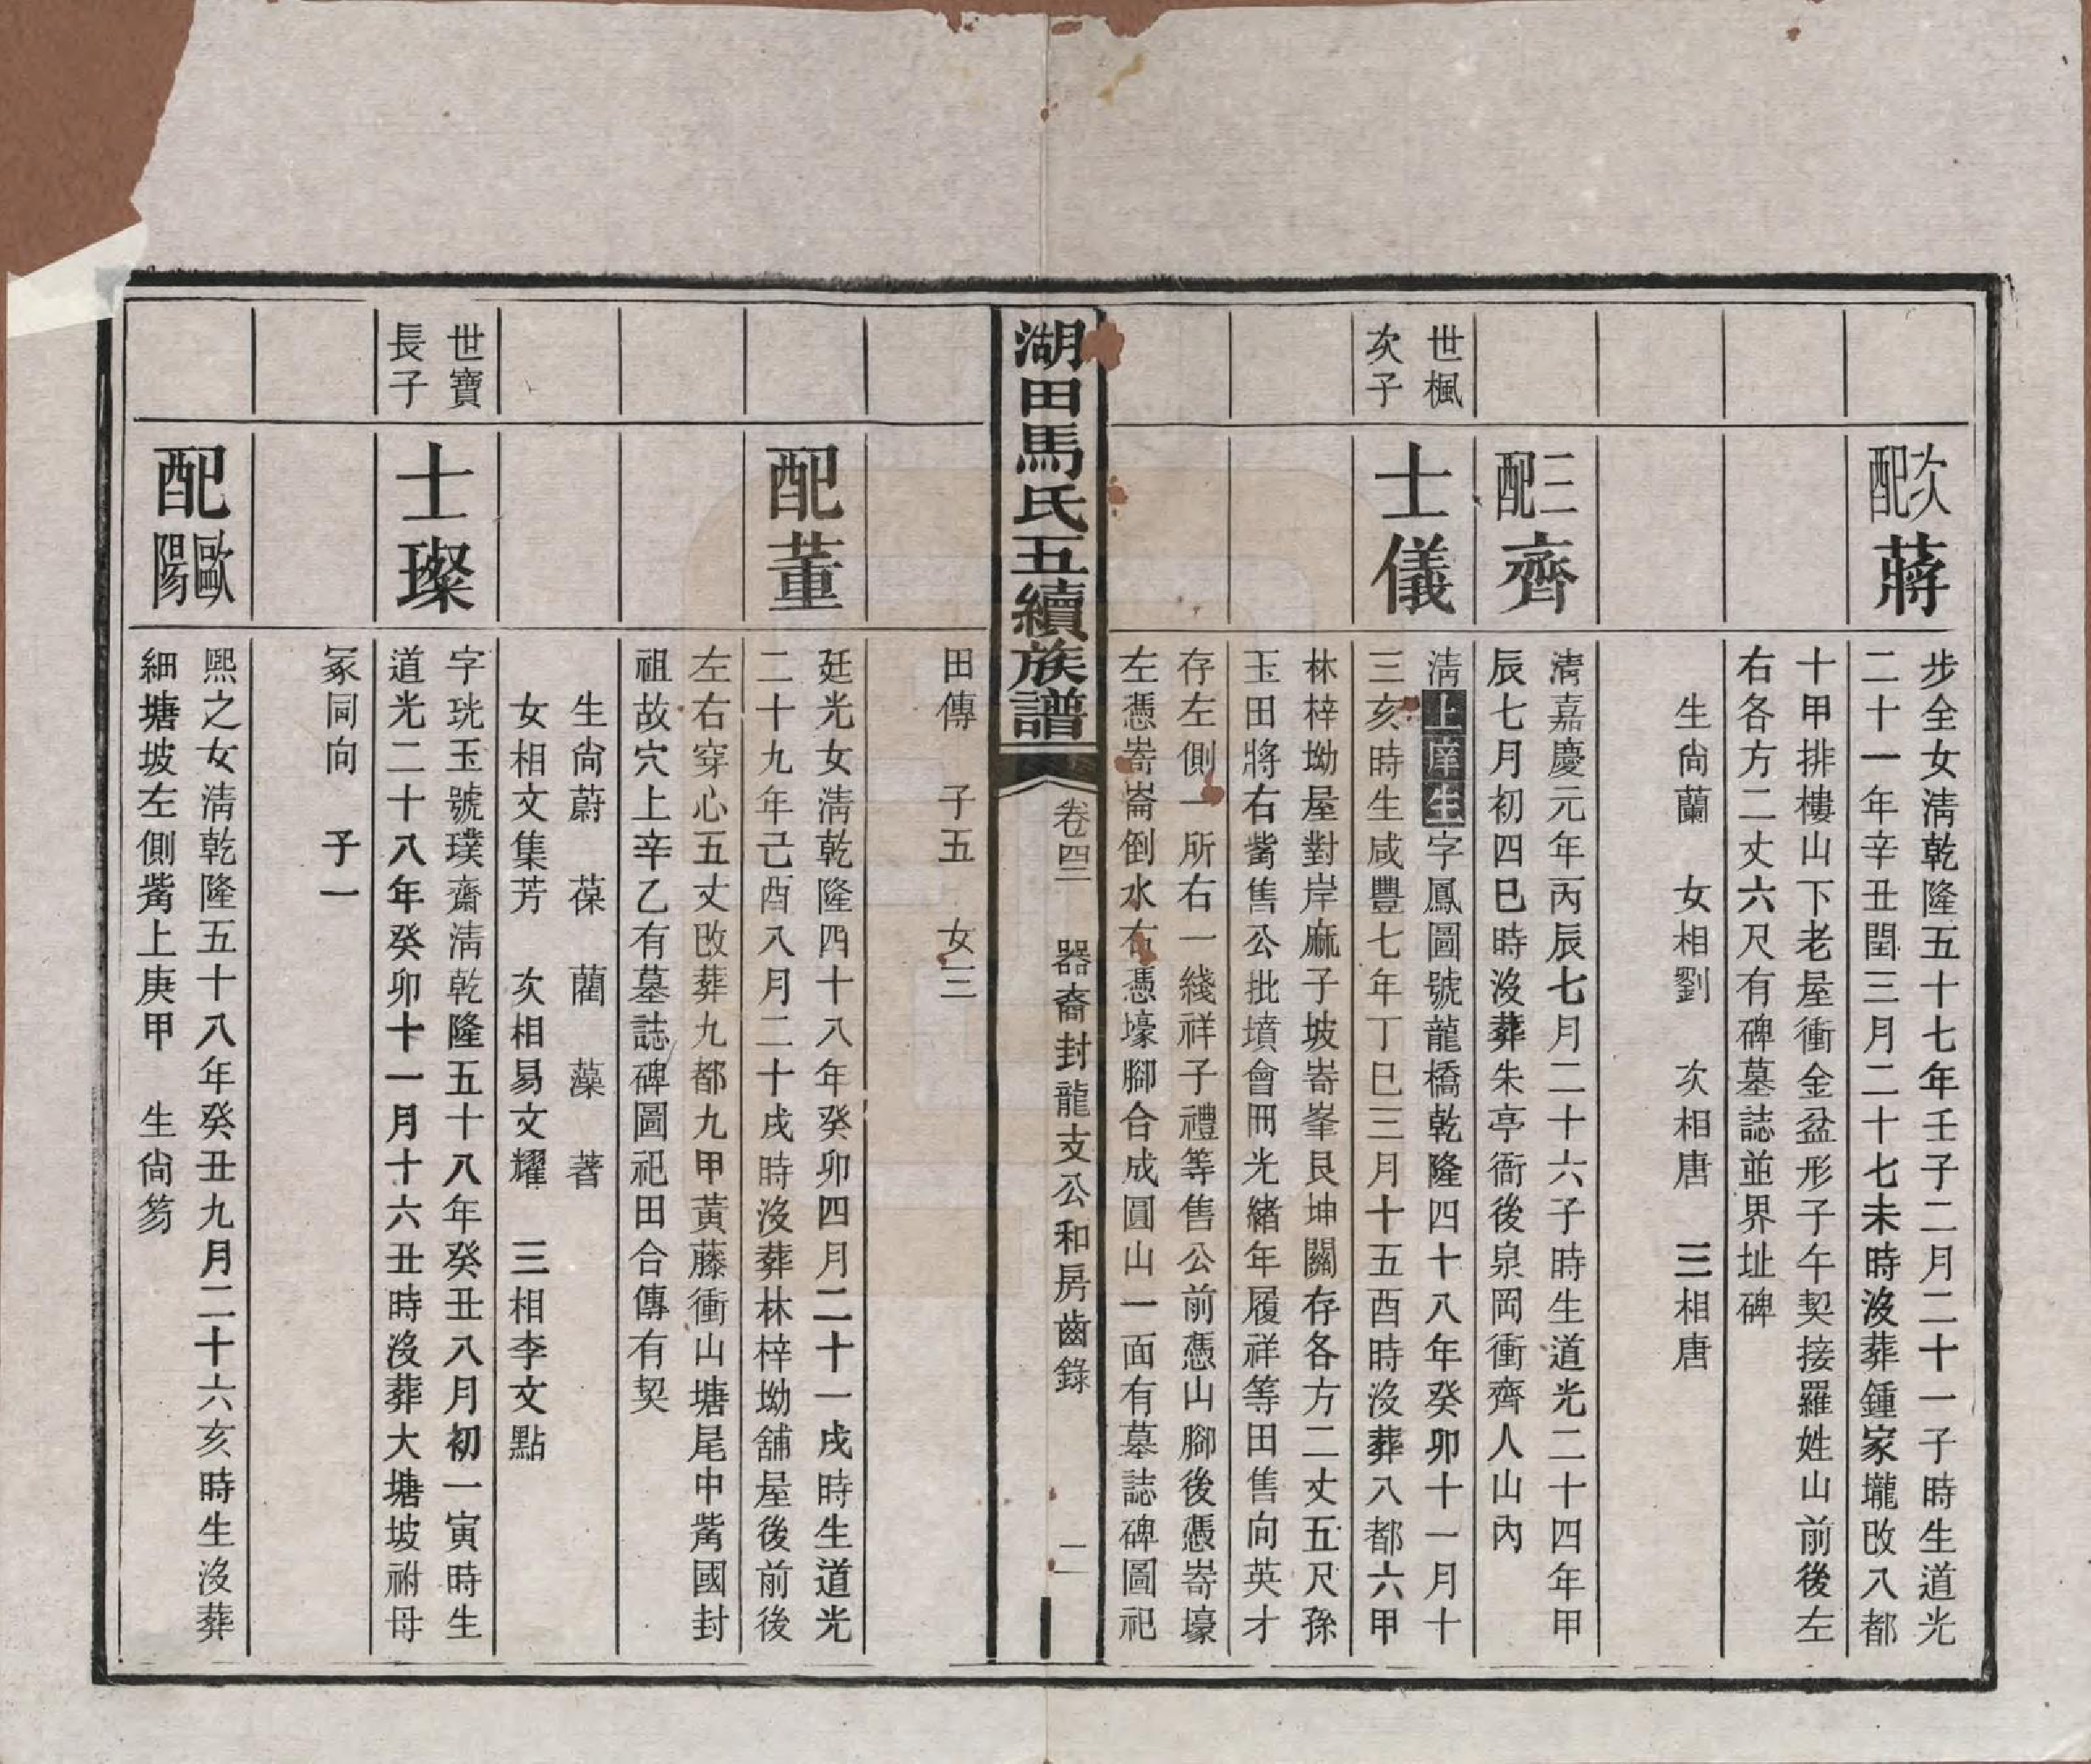 次配蔣
步全女淸乾隆五十七年壬子二月二十一子時生道光
二十一年辛丑閏三月二十七未時沒葬鍾家壠改八都
十甲排樓山下老屋衝金盆形子午契接羅姓山前後左
右各方二丈六尺有碑墓誌並界址碑
生尙蘭　女相劉　次相唐　三相唐
三配齊
淸嘉慶元年丙辰七月二十六子時生道光二十四年甲
辰七月初四巳時沒葬朱亭衙後泉岡衝齊人山內
世楓
次子
士儀
淸上庠生字鳳圖號龍橋乾隆四十八年癸卯十一月十
三亥時生咸豐七年丁巳三月十五酉時沒葬八都六甲
林梓坳屋對岸麻子坡嵜峯艮坤關存各方二丈五尺孫
玉田將右觜售公批墳會冊光緒年履祥等田售向英才
存左側一所右一綫祥子禮等售公前憑山腳後憑嵜壕
左憑嵜崙倒水右憑壕腳合成圓山一面有墓誌碑圖祀
湖田馬氏五續族譜
卷四三　器裔封龍支公和房齒錄　二
田傳　子五　女三
配董
廷光女淸乾隆四十八年癸卯四月二十一戌時生道光
二十九年己酉八月二十戌時沒葬林梓坳舖屋後前後
左右穿心五丈改葬九都九甲黃藤衝山塘尾中觜國封
祖故穴上辛乙有墓誌碑圖祀田合傳有契
生尙蔚　葆　藺　藻　著
女相文集芳　次相易文耀　三相李文點
世寶
長子
士璨
字珖玉號璞齋淸乾隆五十八年癸丑八月初一寅時生
道光二十八年癸卯十一月十六丑時沒葬大塘坡祔母
冢同向　子一
配歐陽
熙之女淸乾隆五十八年癸丑九月二十六亥時生沒葬
細塘坡左側觜上庚甲　生尙笏